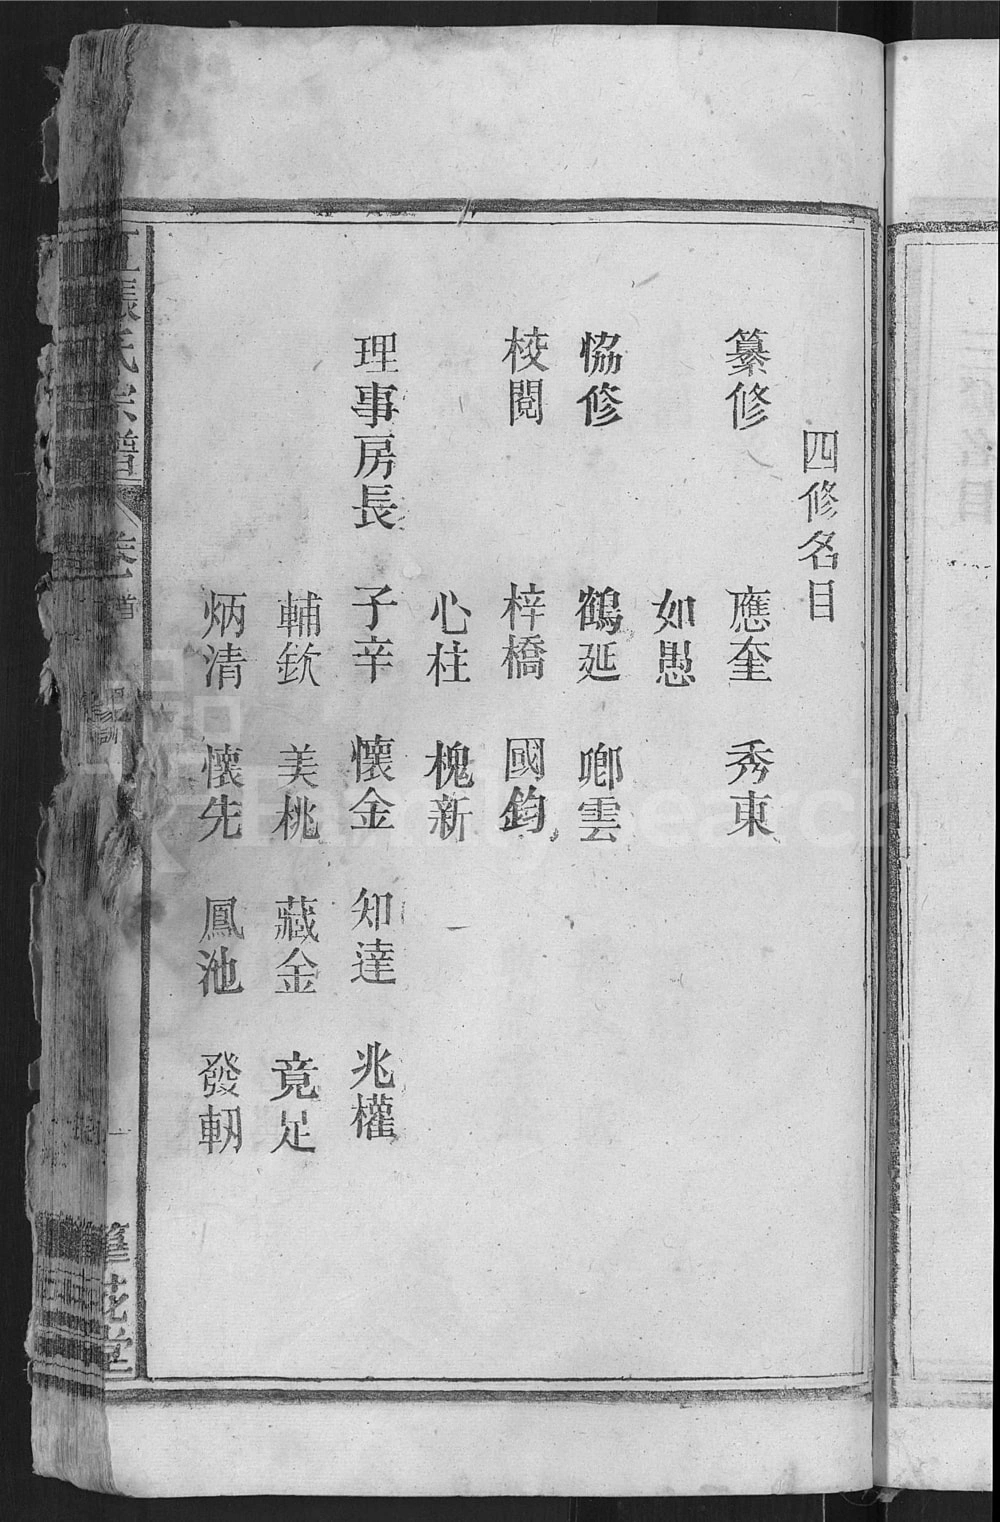 四修名目
纂修 應奎 秀東
如愚
恊修 鶴延 卿雲
校閱 梓橋 國鈞
心柱 槐新
理事房長 子辛 懷金 知達 兆權
輔欽 美桃 藏金 竟足
炳清 懷先 鳳池 發軔
江張氏宗譜 卷首 花堂
FamilySearch